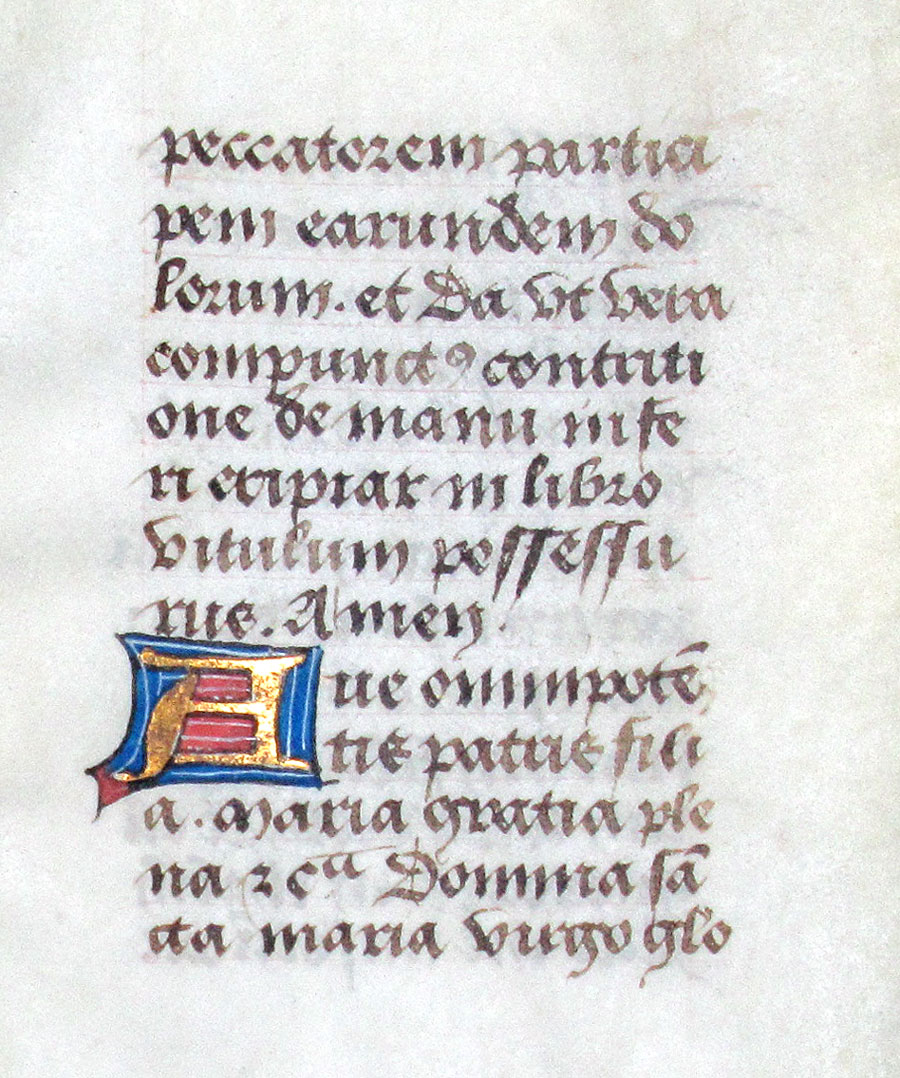 peccatorem partici
pem earundem do
lorum. et Da vt vera
compunctꝯ contriti
one de manu infe
ri eripiar in libro
vitulum possessu
rus. Amen
Aue omnipotē
tis patris fili
a. Maria gratia ple
na ⁊ cᵃ Domina sā
cta maria virgo glo